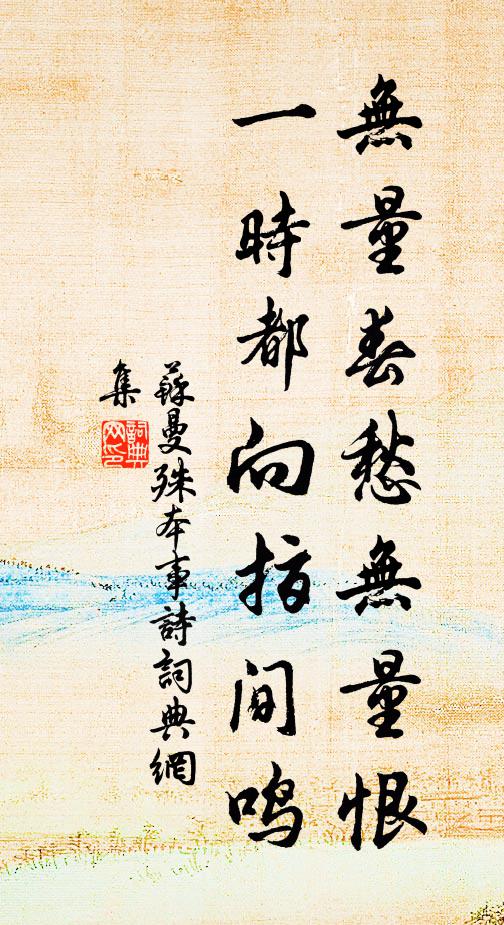 無量春愁無量恨
一時都向指間鳴
蘇曼殊本事詩詞典網
集
詞典網印